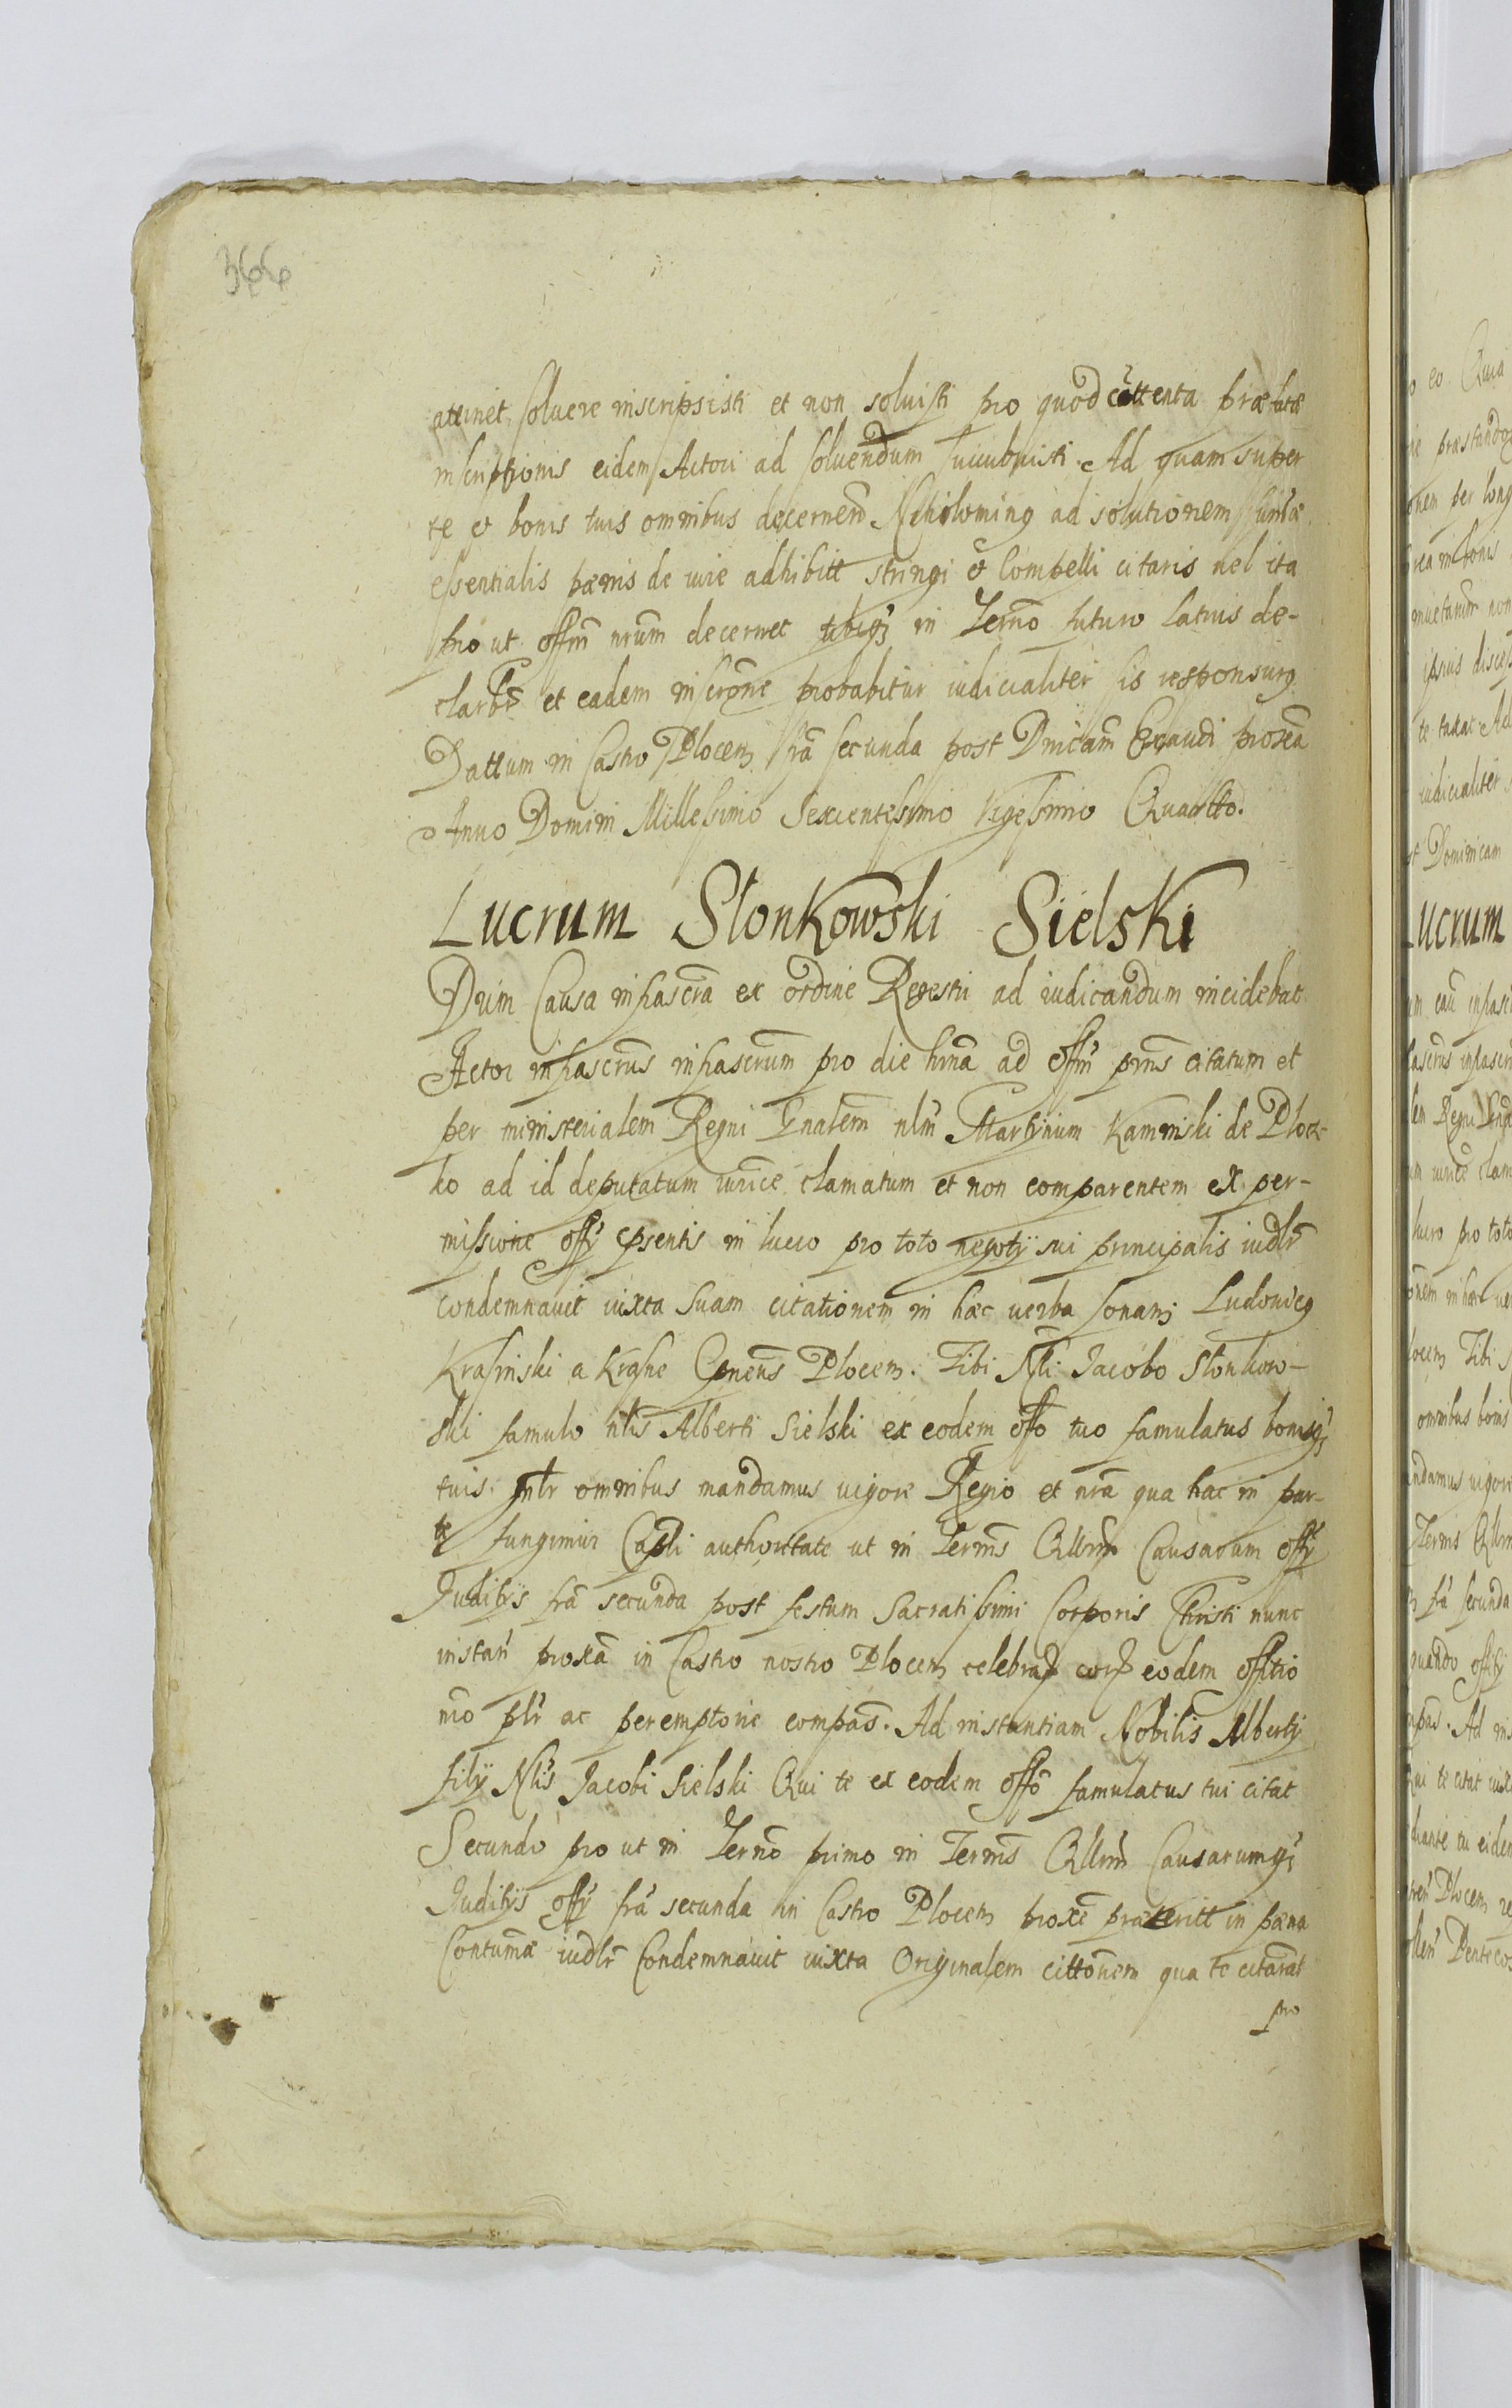 366
attinet soluere inscripsisti et non soluisti pro quod cõttenta præfatæ
inscriptionis eidem Actori ad soluendum succubuisti. Ad quam super
te et bonis tuis omnibus decernen̄ Nihilominq ad solutionem sum̄æ
essentialis pænis de iure adhibitt stringi et Compelli citaris uel ita
pro ut offm̄ nrum̄ decernet tibiq; in Termō futuro latius de-
clarbr̄ et eadem inscrōne probabitur iudicialiter sis responsurq
Dattum in Castro Plocen̄ frā secunda post Dnicam̄ Exaudi proxā
Anno Domini Millesimo Sexcentesimo Vigesimo Quartto.
Lucrum Slonkowski Sielski
Dum Causa infrascrā ex ordine Regestri ad iudicandum incidebat
Actor infrascrūs infrascrūm pro die hrnā ad offm̄ prns̄ citatum et
per ministerialem Regni Gnalem̄ nlm̄ Martinum Kaminski de Plocz-
ko ad id deputatum iuricē clamatum et non comparentem ex per-
missione offy psentis in lucro pro toto negoty sui principalis iudlr̄
condemnauit iuxta suam citationem in hæc uerba sonan; Ludouicq
Krasinski a Krasne Cpnens̄ Plocen. Tibi Nli Jacobo Slonkow-
ski famulo nlis̄ Alberti Sielski ex eodem offo tuo famulatus bonisq;
tuis gnlr omnibus mandamus uigore Regio et nrā qua hac in par-
te fungimur Capli authoritate ut in Termis̄ Qllrm̄ Causarum offy
Juditys frā secunda post festum Sacratissimi Corporis Christi nunc
instan̄ proxā in Castro nostro Plocen celebran̄ cor̄ eodem offitio
nro plr̄ ac peremptorie compas̄. Ad instantiam Nobilis Alberty
fily Nlis̄ Jacobi Sielski Qui te ex eodem offō famulatus tui citat
Secundo pro ut in Termō primo in Termis̄ Qllrm̄ Causarumq;
Juditys offy frā secunda in Castro Plocen proxē præteritt in pæna
Contumæ iudlr̄ Condemnauit iuxta Originalem cittōnem qua te citarāt
pro